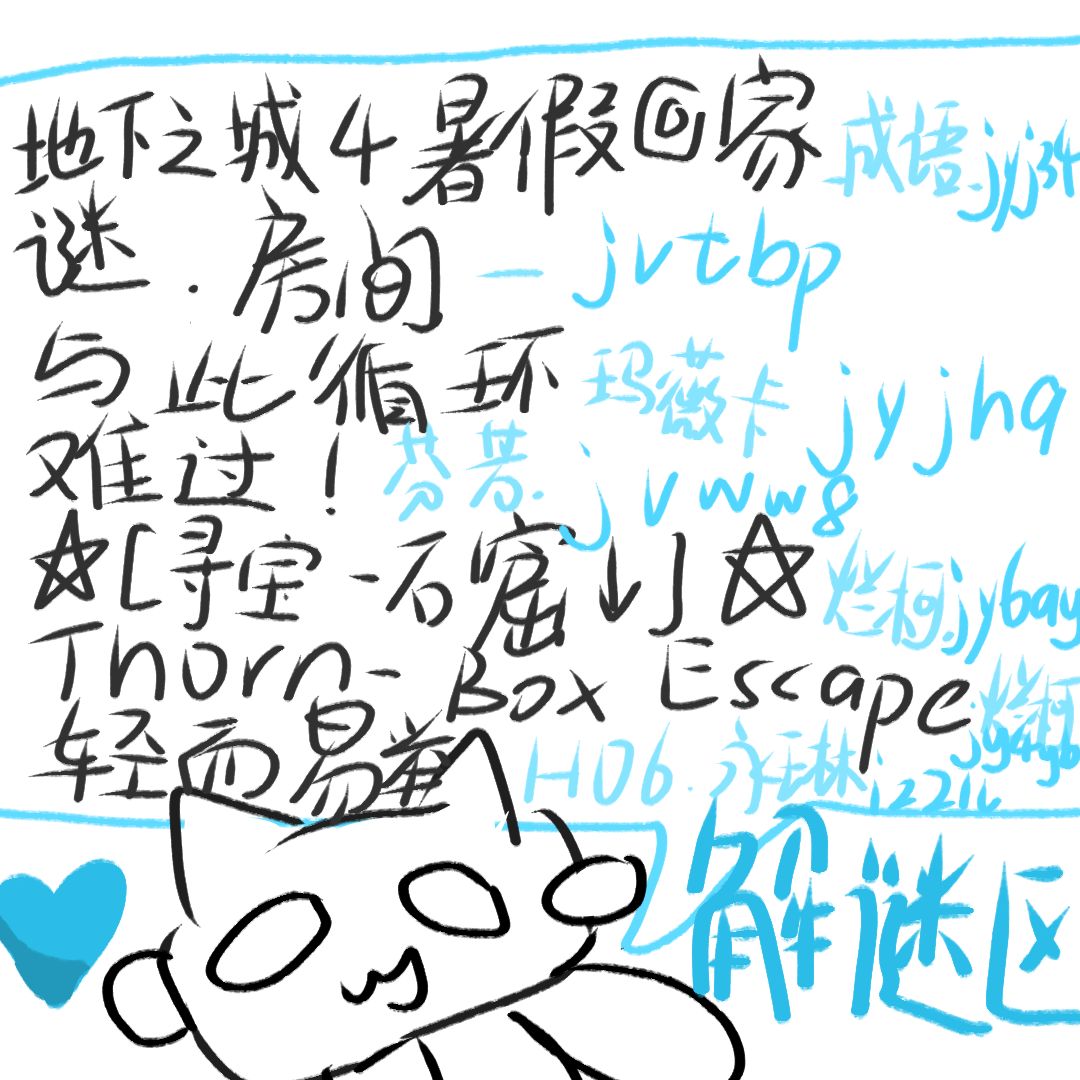 地下之城4暑假回家 成语.jyj34
谜.房间一jvtbp
与此循环 玛薇卡jyjhq
难过！芬芳.jvww8
☆[寻宝-石窟↓]☆ 烂柯.jybay
Thorn-Box Escape 烂柯
轻而易举 H06.永玉琳
解谜区